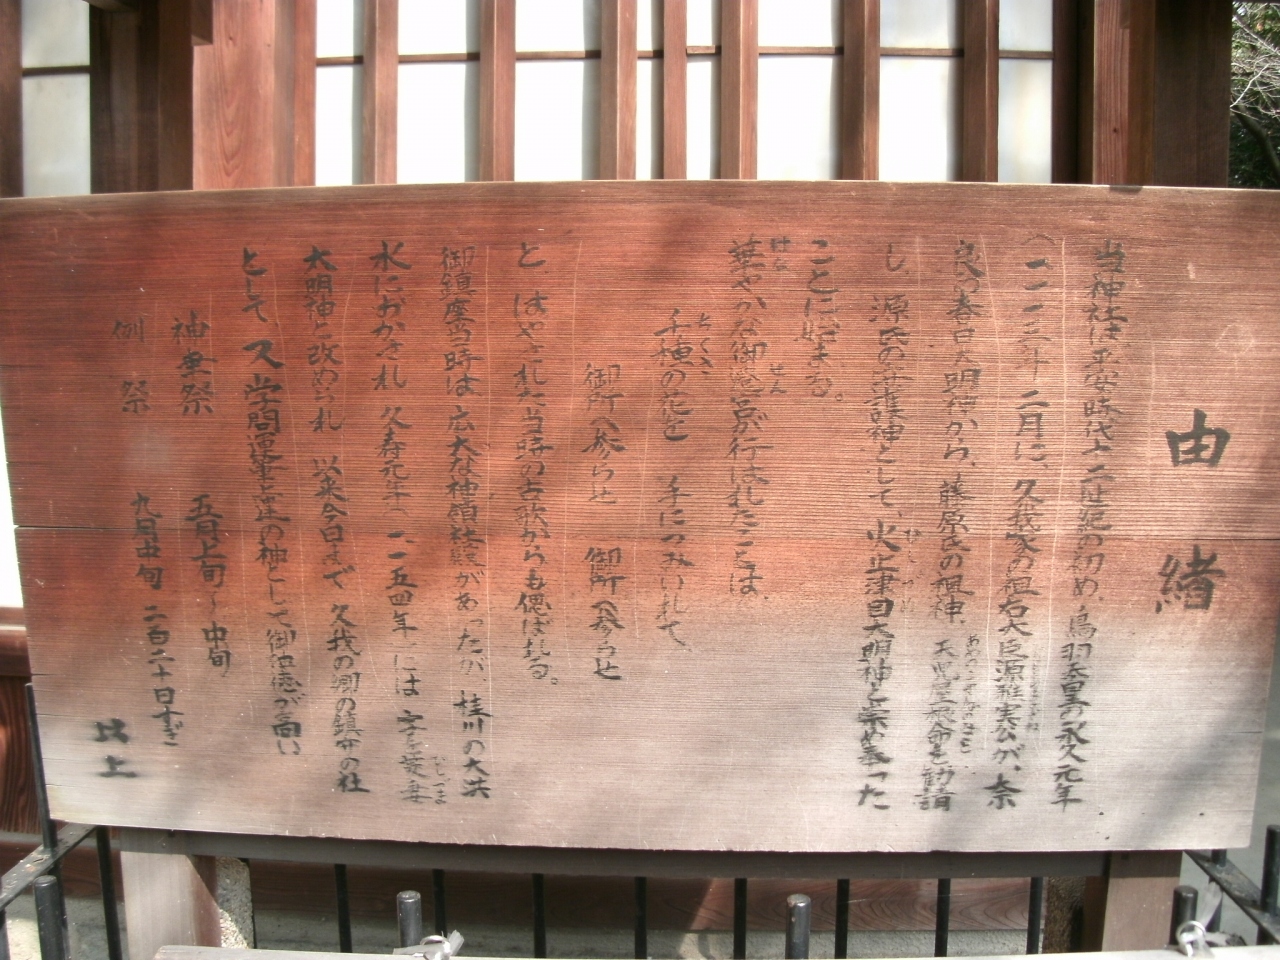 由緒
当神社は平安時代十二世紀の初め、鳥羽天皇の永久元年
(一一一三年)二月に、久我家の祖右大臣源雅実公が、奈
良の春日大明神から、藤原氏の祖神、天児屋根命を勧請
し、源氏の守護神として、火止津目大明神と崇め奉った
ことに始まる。
華やかな御遷宮が行はれたことは
千種の花を 手につみいれて、
御所へ参らせ 御所へ参らせ
と、はやされた当時の古歌からも偲ばれる。
御鎮座当時は 広大な神領社殿があったが、桂川の大洪
水におかされ 久寿元年(一一五四年)には 字を菱妻
大明神と改められ 以来今日まで 久我の郷の鎮守の社
として 又学問運筆の神として御神徳が高い
神幸祭 五月上旬~中旬
例祭 九月中旬 二百二十日すぎ
以上